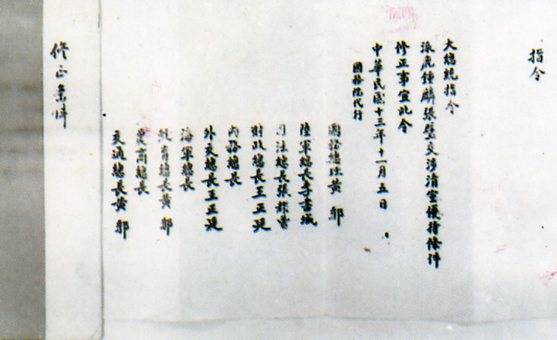 指令
大總統指令
派鹿鍾麟張璧交涉清室優待條件
修正事宜此令
中華民國十三年十一月五日
國務院代行
國務總理黃郛
陸軍總長李書城
司法總長張耀曾
財政總長王正廷
內務總長
外交總長王正廷
海軍總長
教育總長黃郛
農商總長
交通總長黃郛
修正條件